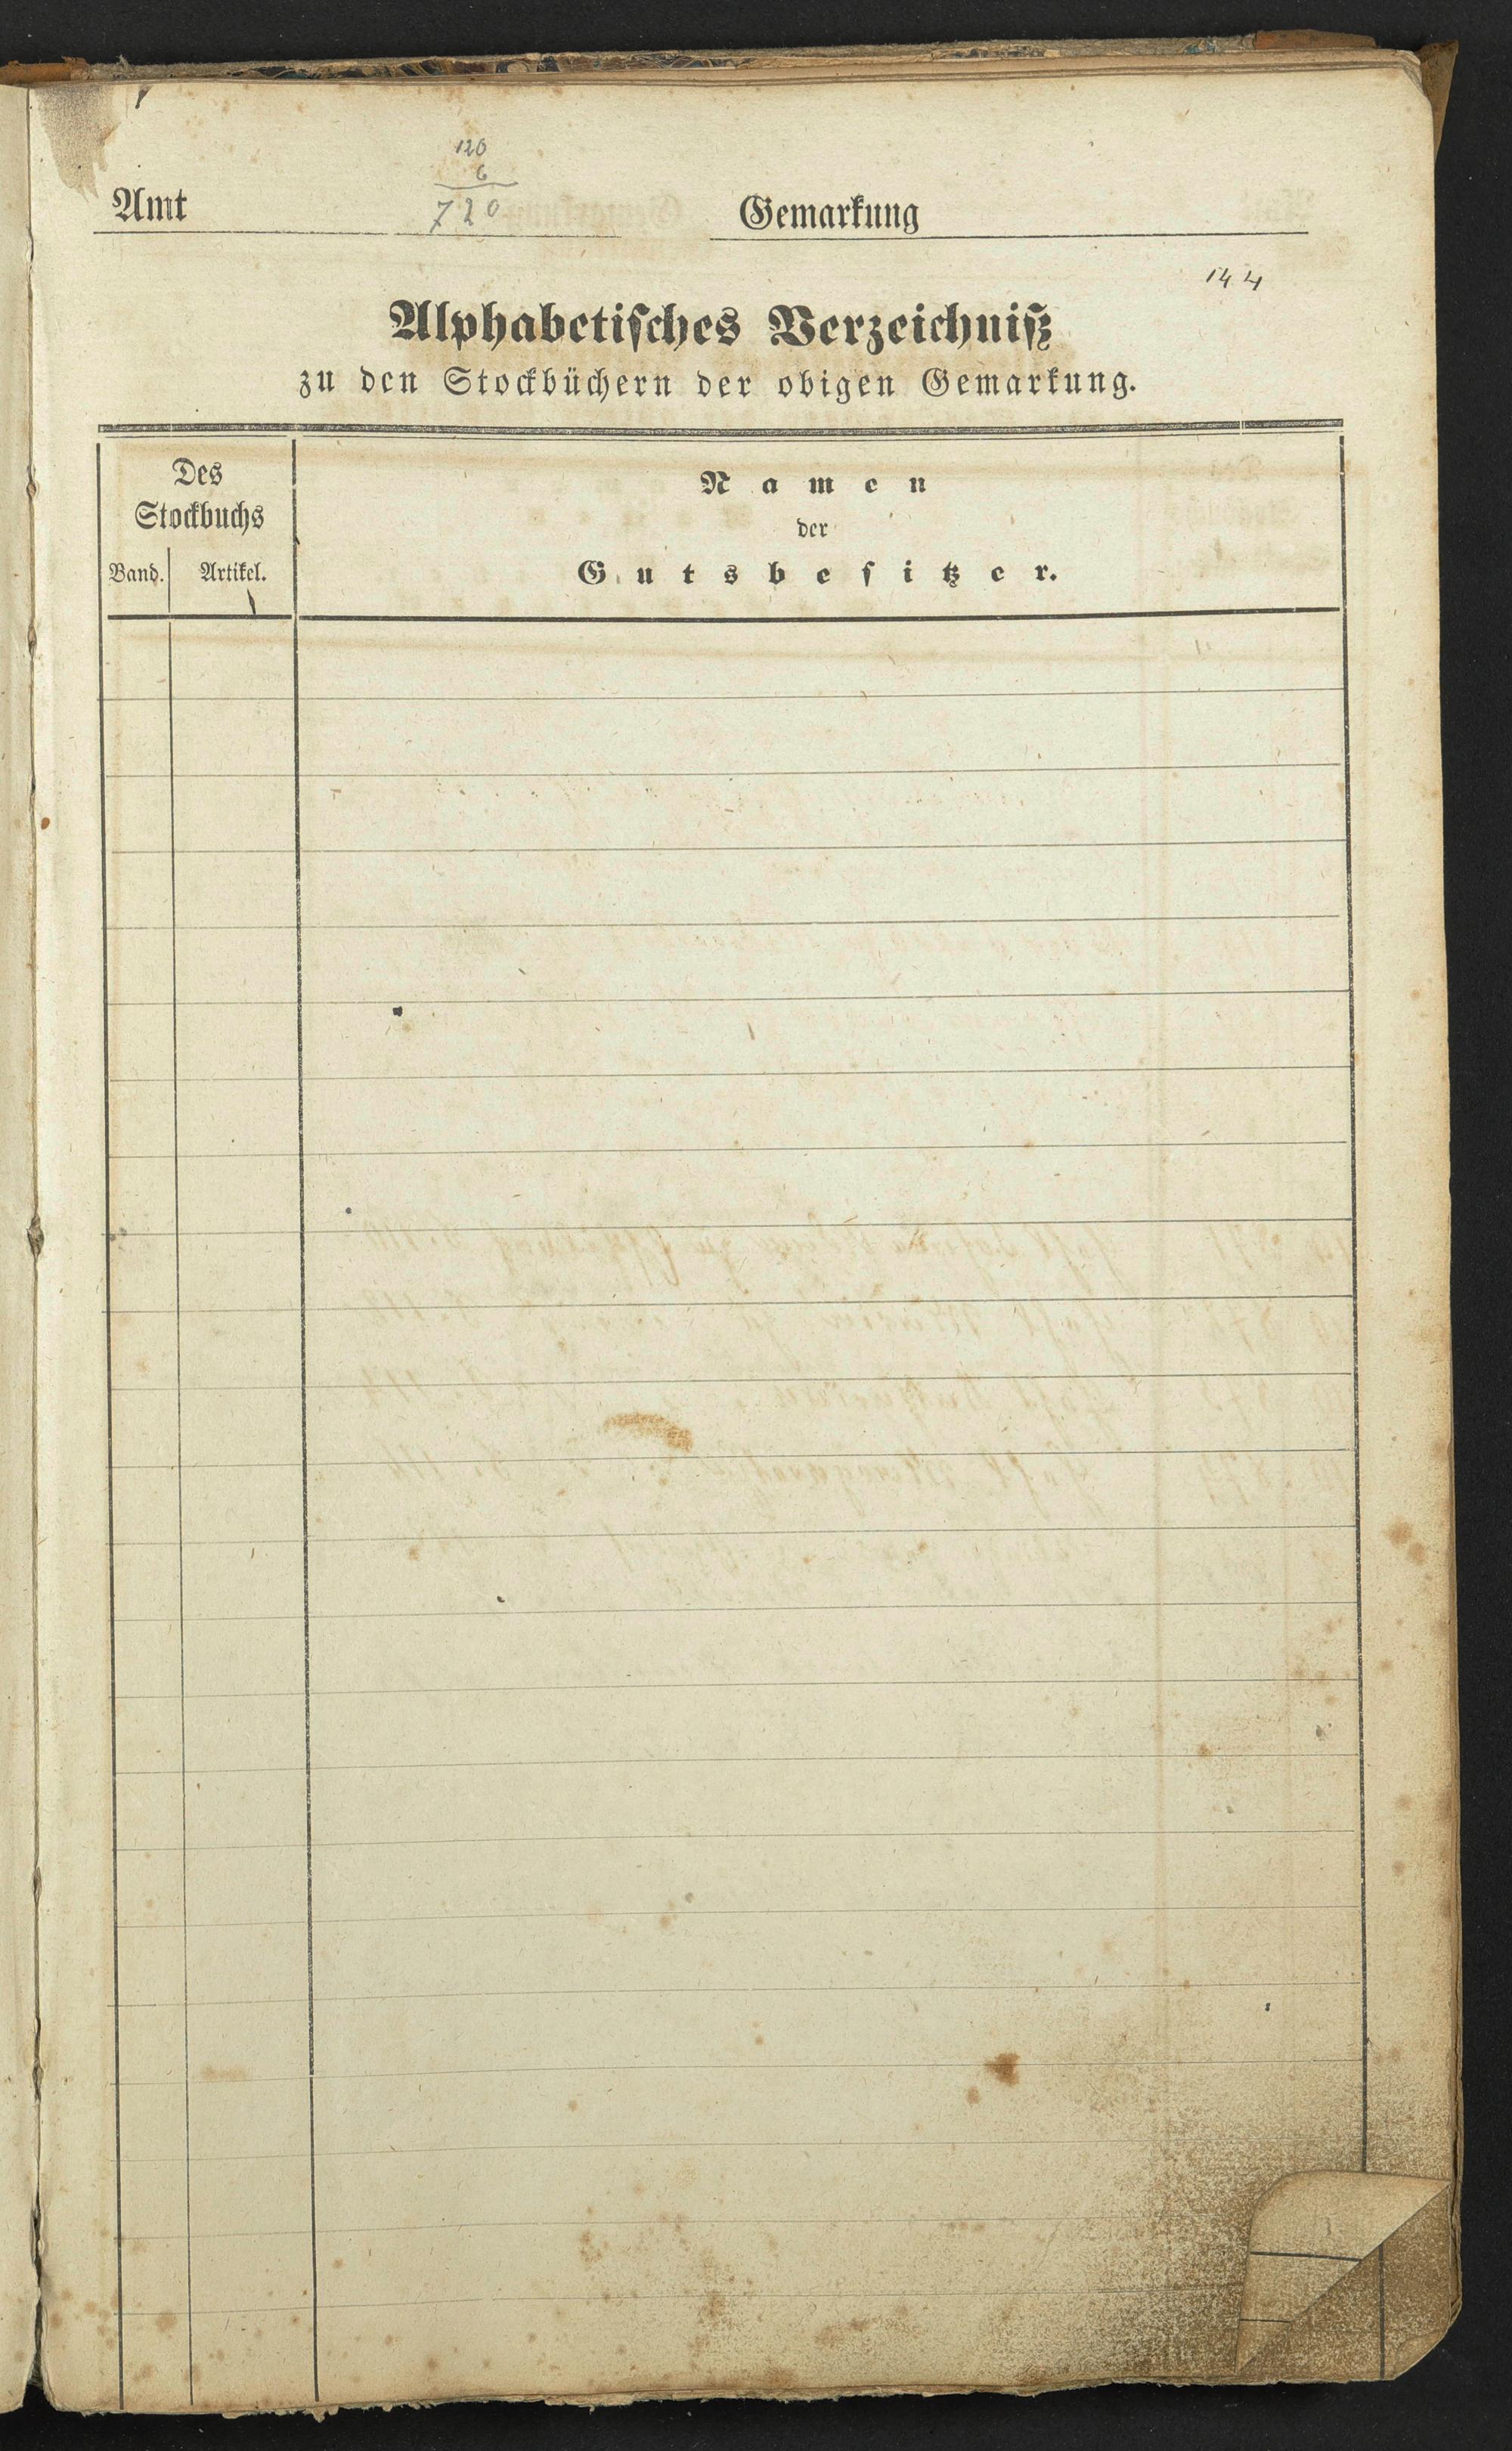 120
6
720
Amt
Gemarkung
144
Alphabetisches Verzeichniß
zu den Stockbüchern der obigen Gemarkung.
Des
Stockbuchs
Band. Artikel.
Namen
der
Gutsbesitzer.